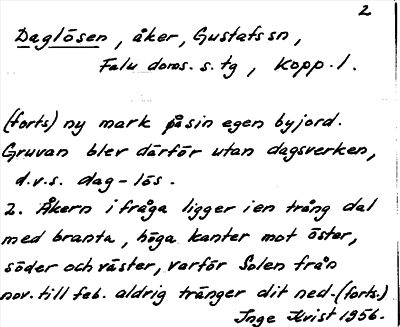 2
Daglösen, åker, Gustafs sn,
Falu doms. s. tg, Kopp. l.
(forts) ny mark på sin egen byjord.
Gruvan blev därför utan dagsverken,
d.v.s. dag-lös.
2. Åkern i fråga ligger i en trång dal
med branta, höga kanter mot öster,
söder och väster, varför Solen från
nov. till feb. aldrig tränger dit ned-(forts.)
Inge Kvist 1956.